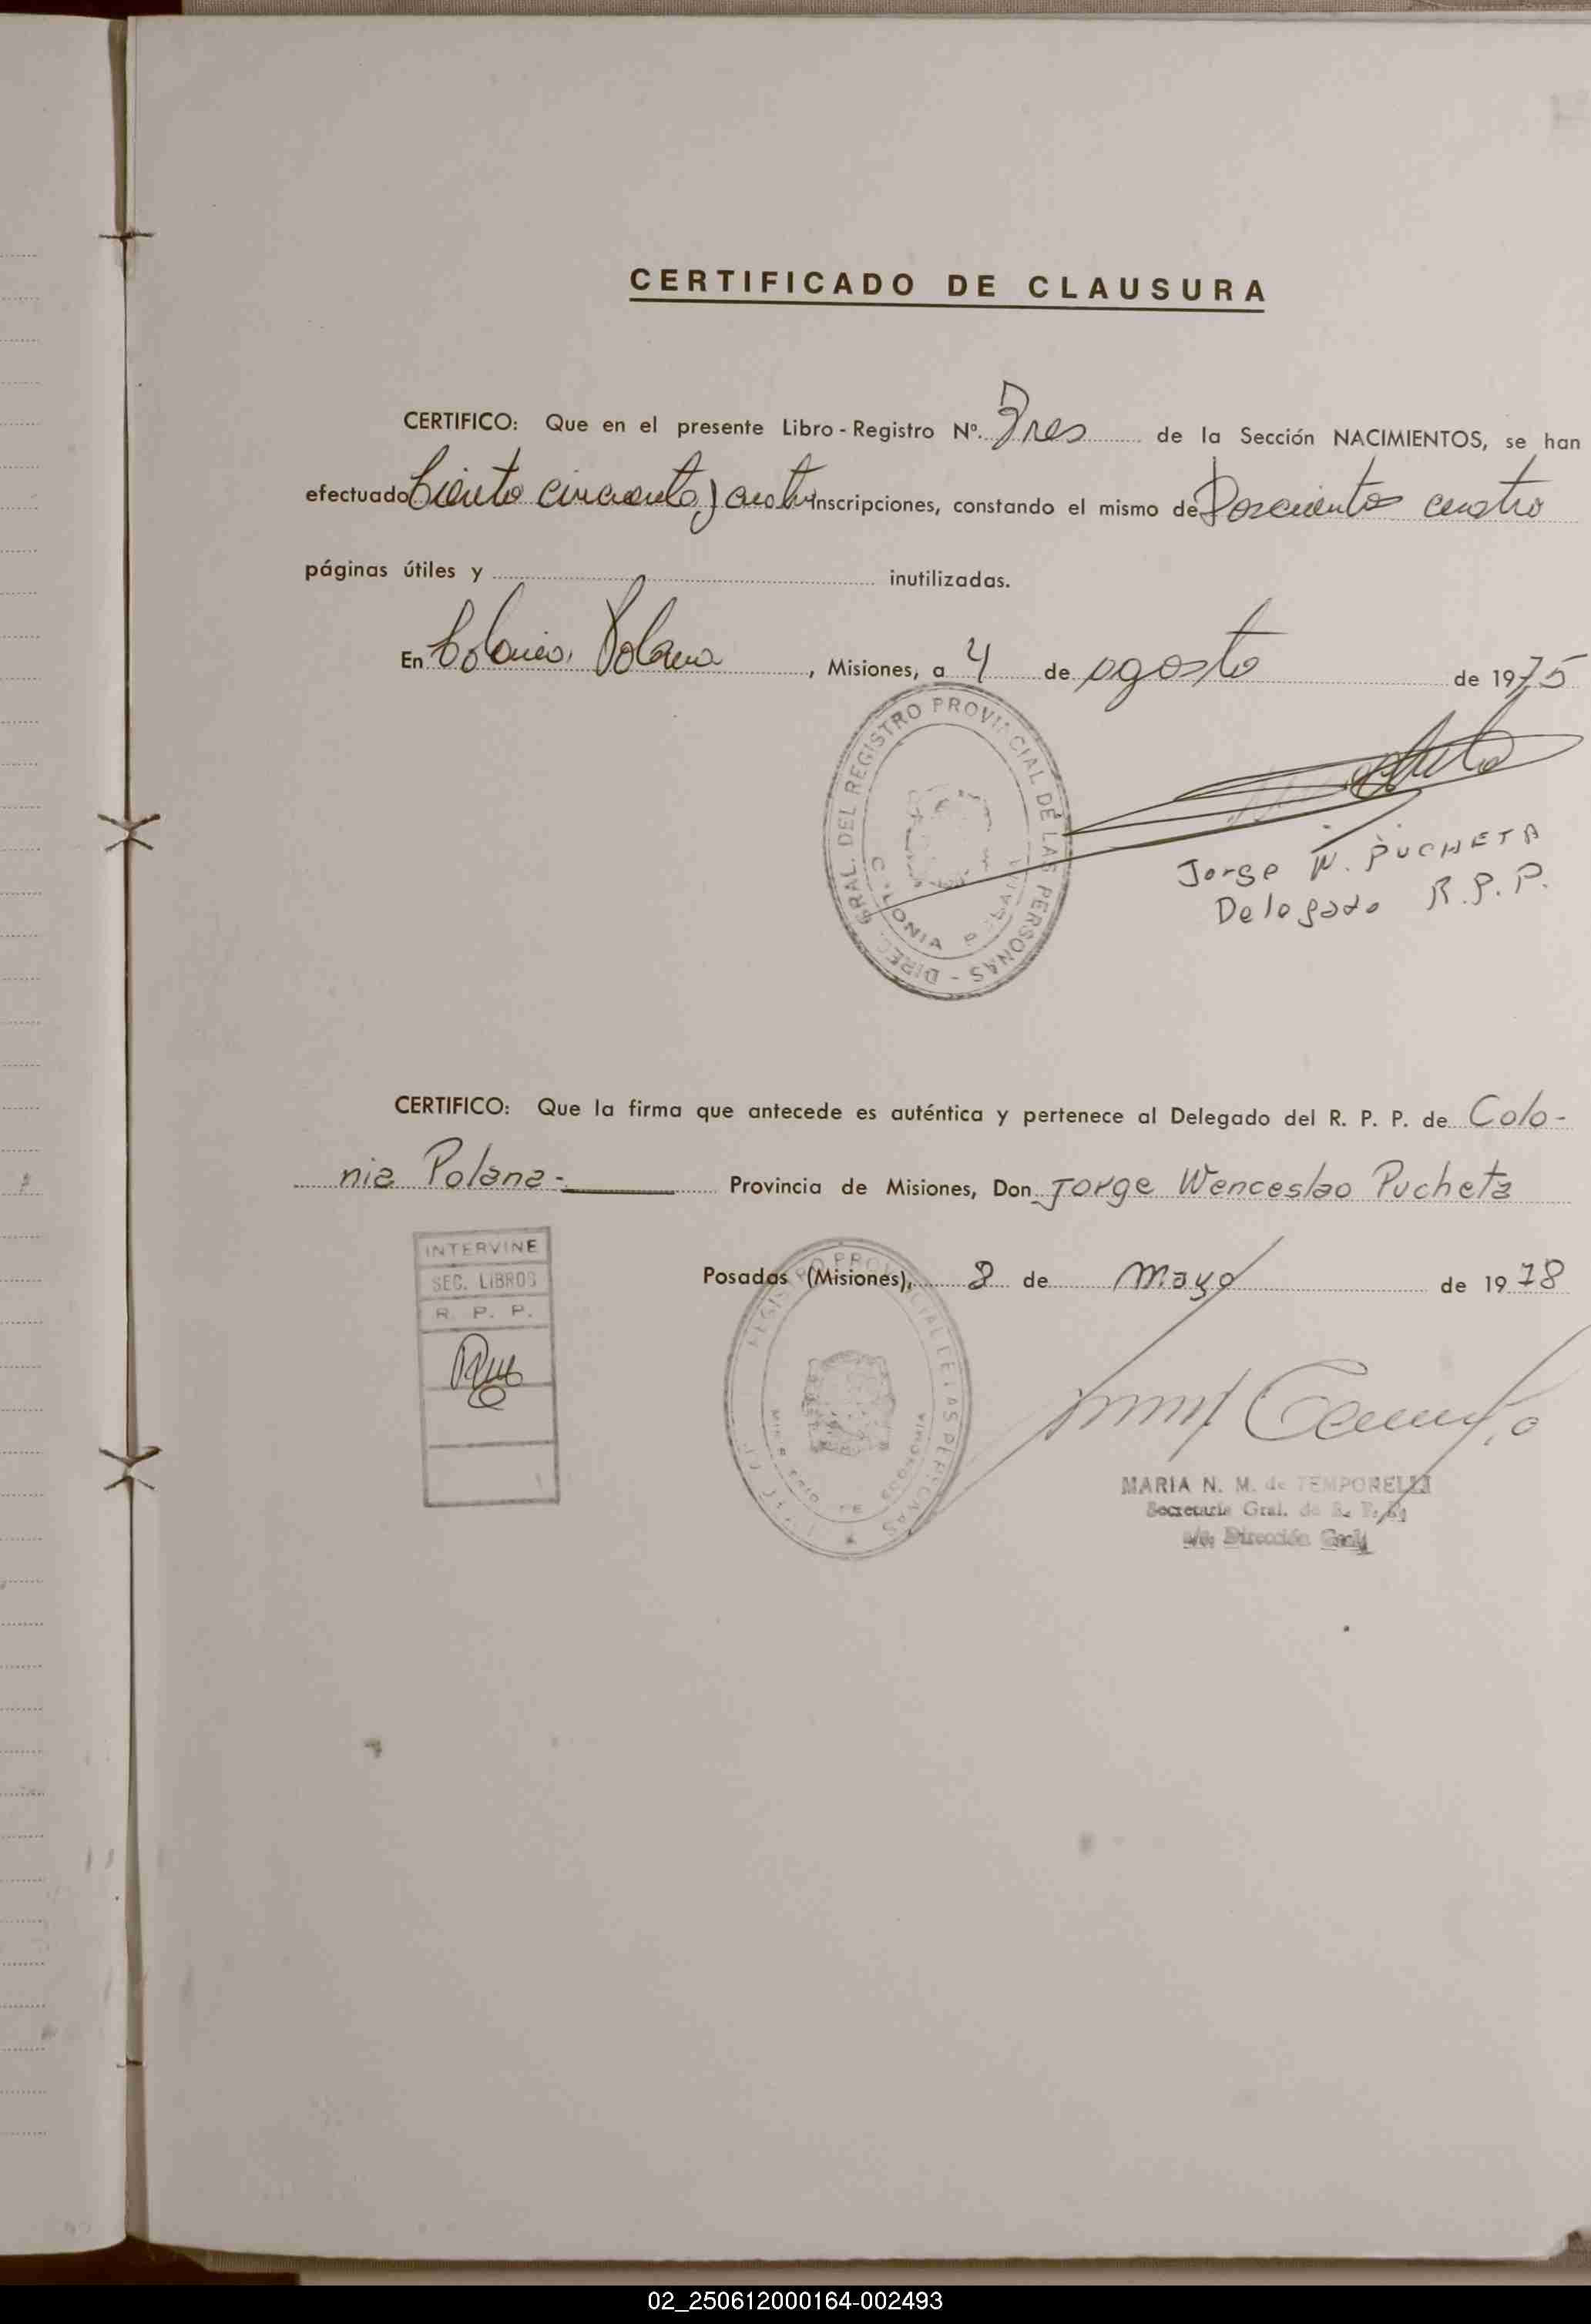 CERTIFICADO DE CLAUSURA
CERTIFICO: Que en el presente Libro - Registro Nº. Tres de la Sección NACIMIENTOS, se han
efectuado Ciento cincuenta y cuatro inscripciones, constando el mismo de Doscientos cuatro
páginas útiles y inutilizadas.
En Colonia Polana, Misiones, a 4 de agosto de 1975
DIREC. GRAL. DEL REGISTRO PROVINCIAL DE LAS PERSONAS -
COLONIA POLANA
Jorge W. PUCHETA
Delegado R.P.P.
CERTIFICO: Que la firma que antecede es auténtica y pertenece al Delegado del R. P. P. de Colo-
nia Polana - Provincia de Misiones, Don Jorge Wenceslao Pucheta
Posadas (Misiones), 8 de Mayo de 1978
INTERVINE
SEC. LIBROS
R. P. P.
REGISTRO PROVINCIAL DE LAS PERSONAS
MINISTERIO DE ECONOMIA
MARIA N. M. de TEMPORELLI
Secretaria Gral. de R. P. P.
a/c. Dirección Gral.
02_250612000164-002493